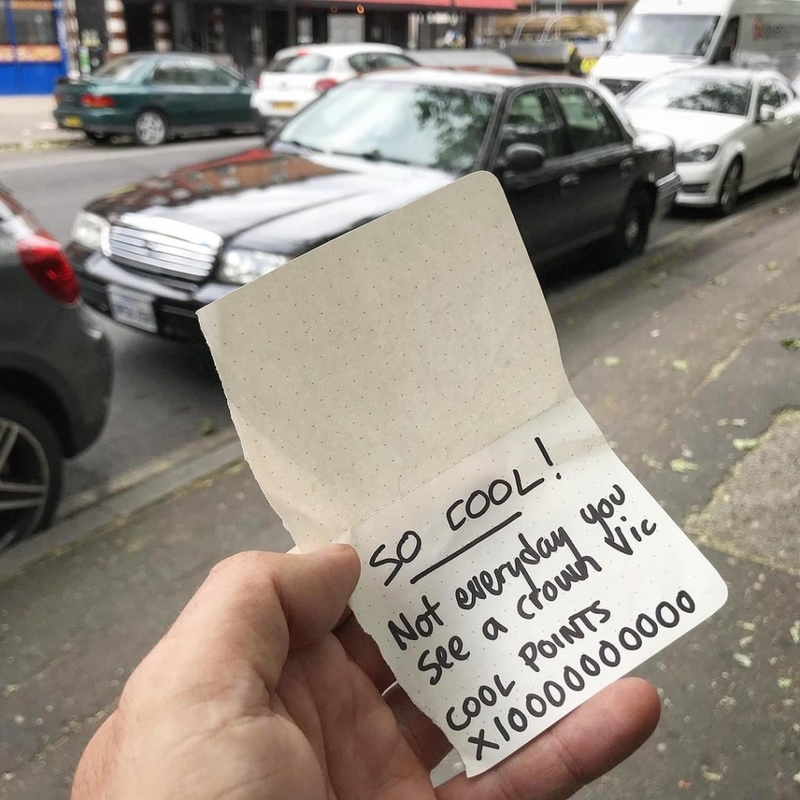 SO COOL!
Not everyday you
see a crown Vic
COOL POINTS
X10000000000